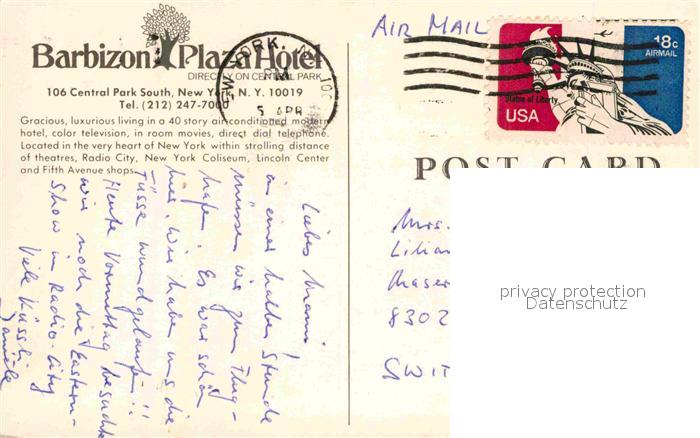 Barbizon Plaza Hotel
DIRECTLY ON CENTRAL PARK
106 Central Park South, New York, N. Y. 10019
Tel. (212) 247-7000
Gracious, luxurious living in a 40 story air conditioned modern
hotel, color television, in room movies, direct dial telephone.
Located in the very heart of New York within strolling distance
of theatres, Radio City, New York Coliseum, Lincoln Center
and Fifth Avenue shops.
Liebes Mami!
in einer halben Stunde
müssen wir zum Flug-
hafen. Es war schön
hier. Wir haben uns die
Füsse wund gelaufen!!
Heute Vormittag besuchten
wir noch die Eastern-
Show in Radio-City
Viele Küssli
Daniela
NEW YORK, N.Y. 100
PM
5 APR
AIR MAIL
18c
AIRMAIL
Statue of Liberty
USA
POST CARD
Mrs.
Lilian
8302
SWIT
privacy protection
Datenschutz